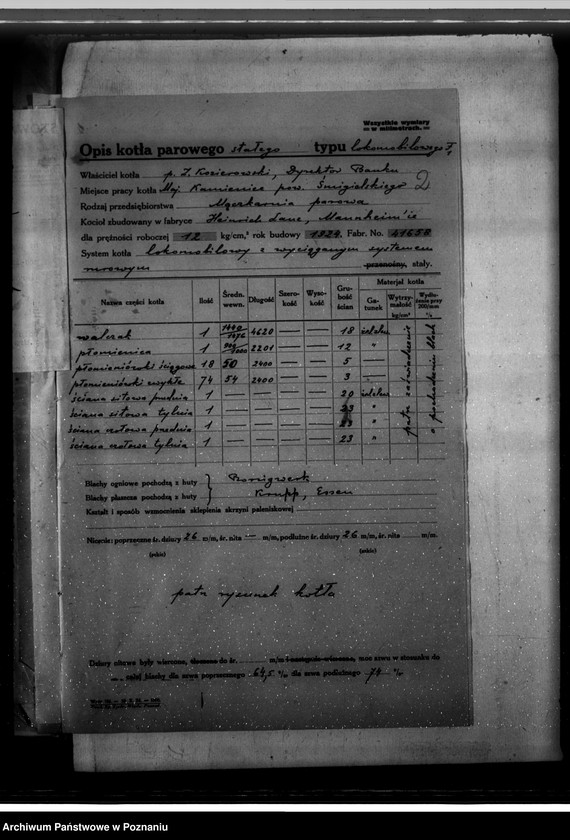 Wszystkie wymiary
w milimetrach.
Opis kotła parowego stałego typu lokomobilowego
Właściciel kotła p. Dyrektor Banku
Miejsce pracy kotła Maj. Kamieniec pow. Śmigielskiego 2
Rodzaj przedsiębiorstwa Mączkarnia parowa
Kocioł zbudowany w fabryce Heinrich Lanz, Mannheim
dla prężności roboczej 12 kg/cm,² rok budowy 1924. Fabr. No. 41658
System kotła lokomobilowy z wyciąganym systemem
rurowym przenośny, stały.
Nazwa części kotła Ilość Średn. wewn. Długość Szerokość Wysokość Grubość ścian Materjał kotła
Gatunek Wytrzymałość kg/mm² Wydłużenie przy 200/mm %
walczak 1 4620 — — 18
płomienica 1 2201 — — 12 "
płomieniówki ściągowe 18 50 2400 — — 5 "
płomieniówki zwykłe 74 54 2400 — — 3 "
ściana sitowa przednia 1 — — — — 20
ściana sitowa tylnia 1 — — — — 23 "
ściana czołowa przednia 1 — — — — 23 "
ściana czołowa tylnia 1 — — — — 23 "
patrz zaświadczenie
o pochodzeniu blach
Blachy ogniowe pochodzą z huty Borsigwerk
Blachy płaszcza pochodzą z huty Krupp, Essen
Kształt i sposób wzmocnienia sklepienia skrzyni paleniskowej
Nicenie: poprzeczne śr. dziury 26 m/m, śr. nita — m/m, podłużne śr. dziury 26 m/m, śr. nita m/m.
(szkic) (szkic)
patrz rysunek kotła
Dziury nitowe były wiercone, do śr. m/m i następnie wiercone, moc szwu w stosunku do
całej blachy dla szwu poprzecznego 64,5 % dla szwu podłużnego 74 %
Archiwum Państwowe w Poznaniu